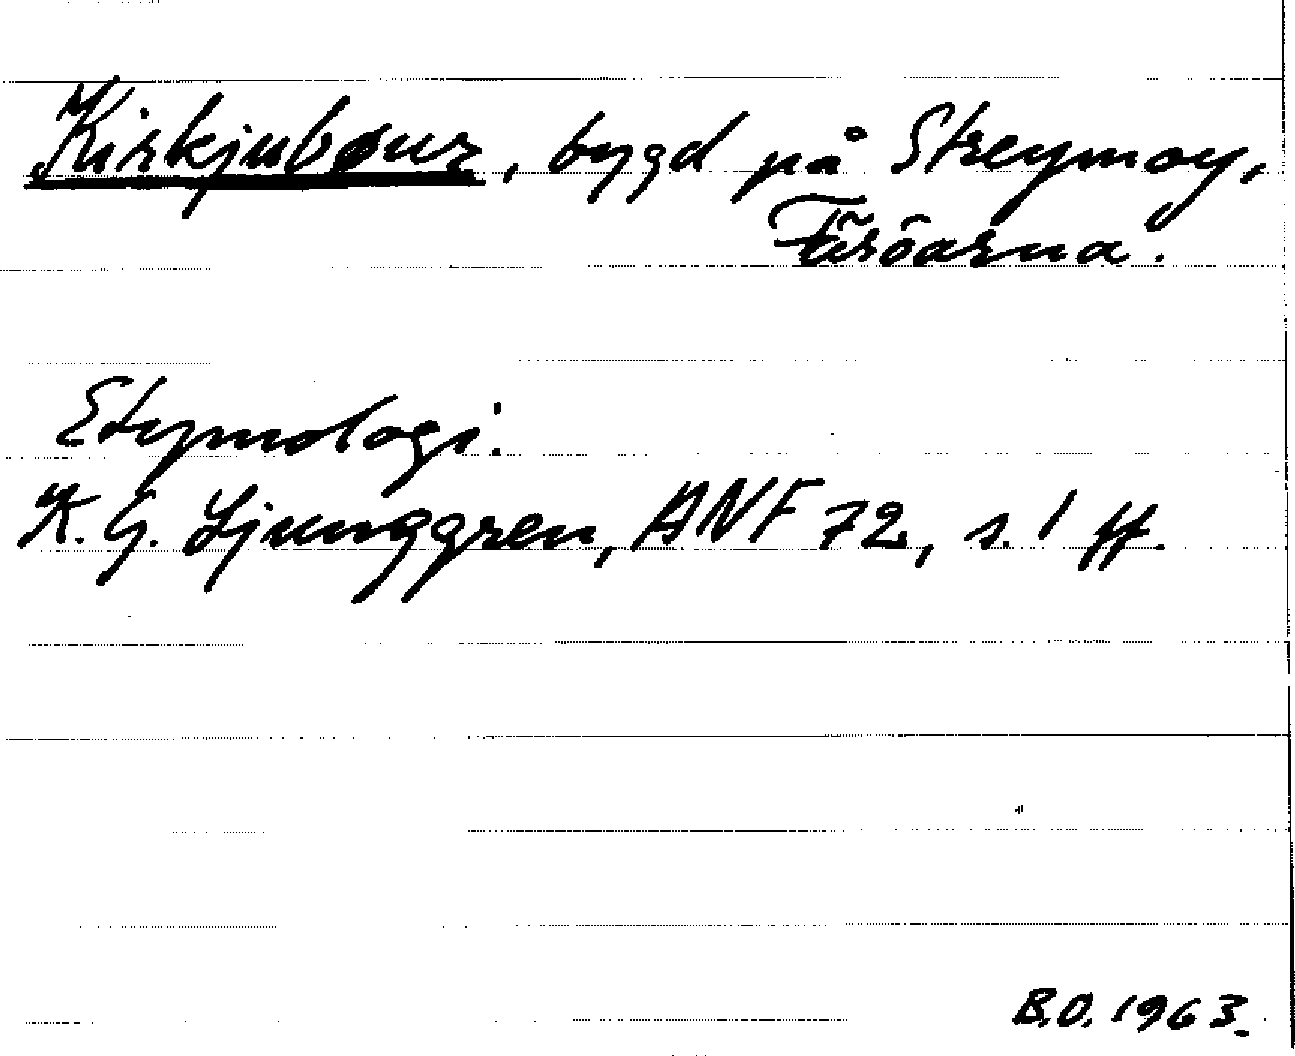 Kirkjubøur, bygd på Streymoy,
Färöarna.
Etymologi.
K. G. Ljunggren, ANF 72, s. 1 ff.
B.O. 1963.